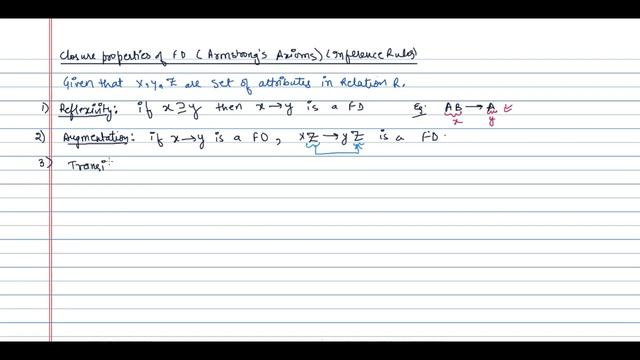 Closure properties of FD (Armstrong's Axioms) (Inference Rules)
Given that x, y, Z are set of attributes in Relation R.
1) Reflexivity: if x ⊇ y then x→y is a FD Eg: AB → A
x y
2) Augmentation: if x→y is a FD, xZ → yZ is a FD.
3) Transi